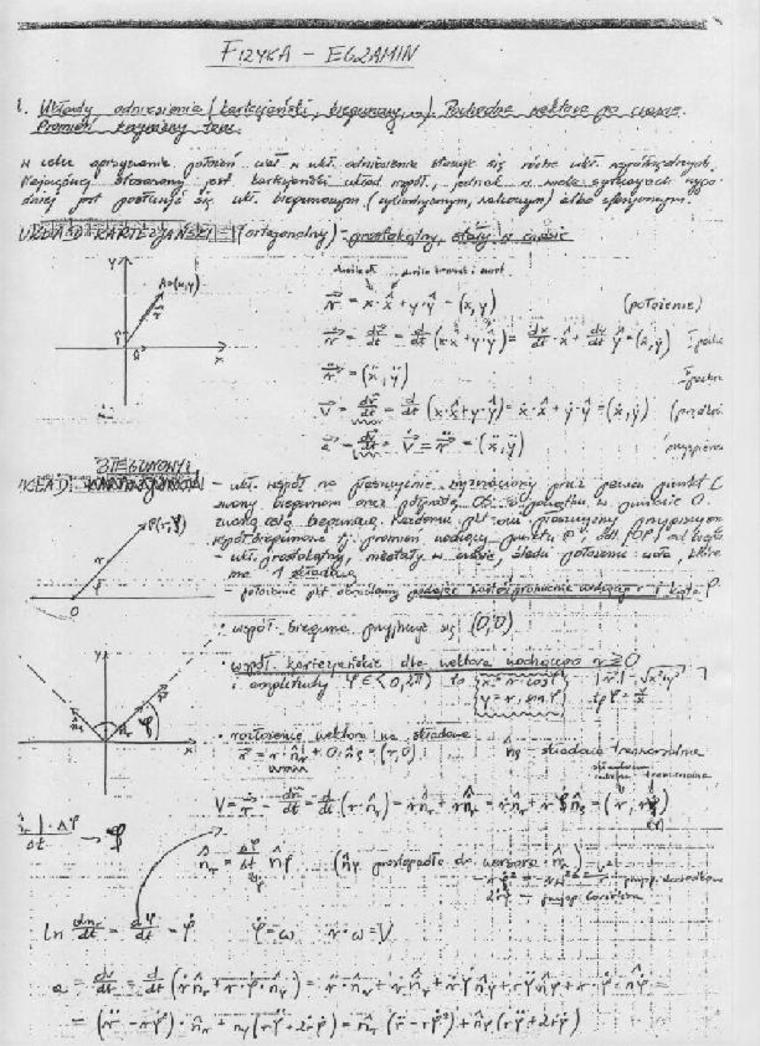 FIZYKA – EGZAMIN
1. Układy odniesienia (kartezjański, biegunowy, ...). Pochodne wektora po czasie.
Promień krzywizny toru.
w celu opisywania położeń ciał w ukł. odniesienia stosuje się różne ukł. współrzędnych.
Najczęściej stosowany jest kartezjański układ współ., jednak w wielu sytuacjach
jest posłużyć się ukł. biegunowym (cylindrycznym, walcowym) albo sferycznym.
UKŁAD KARTEZJAŃSKI – (ortogonalny) - prostokątny, stały w czasie
y
A=(x,y)
x
r⃗ = x·x̂ + y·ŷ = (x,y) (położenie)
= dr⃗/dt = d/dt (x·x̂ + y·ŷ) = dx/dt·x̂ + dy/dt·ŷ = (ẋ,ẏ)
= (ẍ,ÿ)
v⃗ = dr⃗/dt = d/dt (x·x̂ + y·ŷ) = ẋ·x̂ + ẏ·ŷ = (ẋ,ẏ)
a⃗ = dv⃗/dt = v⃗̇ = r⃗̈ = (ẍ,ÿ)
BIEGUNOWY
UKŁAD
- ukł. współ. na płaszczyźnie wyznaczony przez pewien punkt
zwany biegunem oraz półprostą OS o początku w punkcie O
zwaną osią biegunową. Każdemu pkt-owi płaszczyzny
współ. biegunowe tj. promień wodzący punktu P,
ukł. prostokątny, niestały w czasie, śledzi położenie ciała, które
ma 1 składową
- położenie pkt określamy podając promienia wodzącego r i kąta φ
P(r,φ)
r
φ
O
• współ. bieguna przyjmuje się (0,0)
• współ. kartezjańskie dla wektora wodzącego r ≥ 0
i amplitudy φ ∈ <0,2π) to x = r cosφ |r| = √x²+y²
y = r·sinφ tg φ = y/x
y
x
φ
• rozłożenie wektora na składowe
r⃗ = r·n̂r + 0·n̂s = (r,0) n̂s - składowa transwersalna
V = r⃗̇ = dr⃗/dt = d/dt (r·n̂r) = ṙn̂r + rn̂̇r = ṙn̂r + rφ̇n̂s = (ṙ, rφ̇)
Δt → φ̇
n̂̇r = Δφ/Δt n̂φ (n̂φ prostopadłe do wersora n̂r)
dnr/dt = dφ/dt = φ̇ φ̇ = ω r·ω = V
a = dv/dt = d/dt (ṙn̂r + r·φ̇·n̂φ) = r̈·n̂r + ṙn̂̇r + ṙφ̇n̂φ + rφ̈n̂φ + r·φ̇·n̂̇φ =
= (r̈ - rφ̇²)·n̂r + nφ(rφ̈ + 2ṙφ̇) = n̂r(r̈ - rφ̇²) + n̂φ(rφ̈ + 2ṙφ̇)